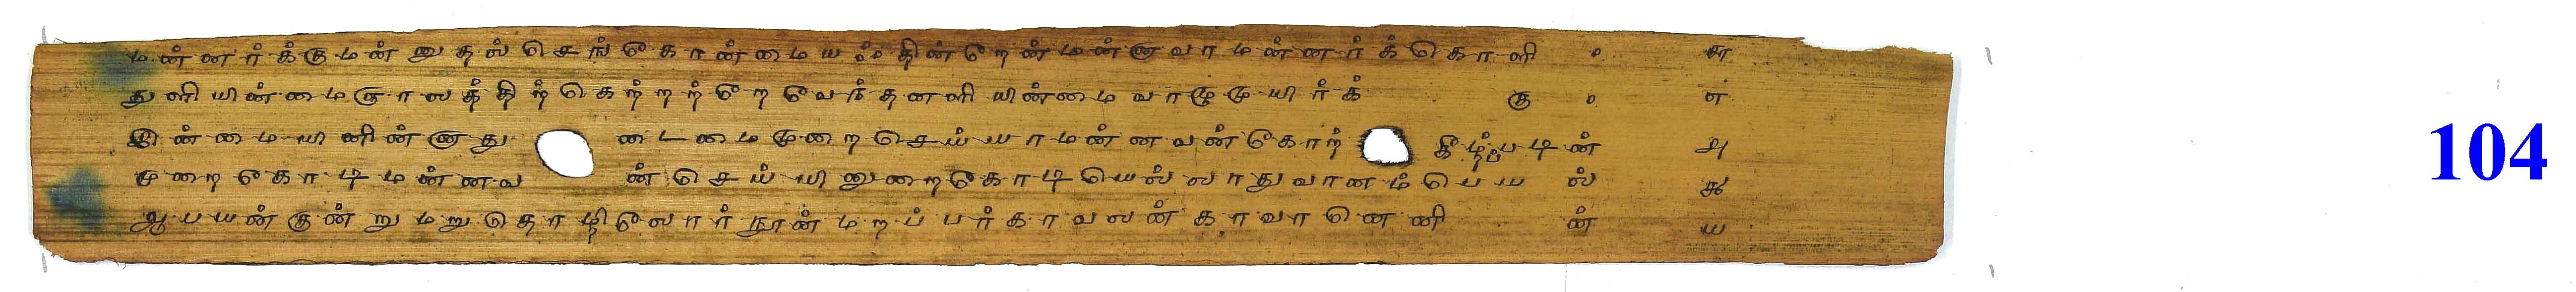 மன்னர்க்குமன்னுதல்செங்கோன்மையஃதின்றேன்மன்னாவாமன்னர்க்கொளி ௦ ௬
துளியின்மைஞாலத்திற்கெற்றற்றேவேந்தனளியின்மைவாழுமுயிர்க் கு ௦ ௭
இன்மையினின்னாது டைமைமுறைசெய்யாமன்னவன்கோற் கீழ்ப்படின் ௮
முறைகோடிமன்னவ ன்செய்யினுறைகோடியொல்லாதுவானம்பெயல் ௯
ஆபயன்குன்றுமறுதொழிலோர்நூன்மறப்பர்காவலன்காவானெனி ன் ௰
104